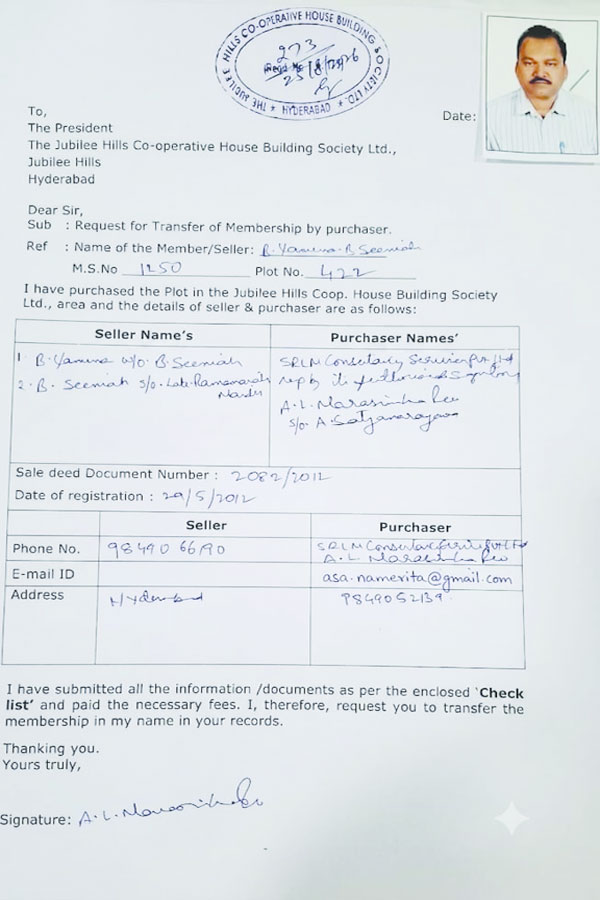 THE JUBILEE HILLS CO-OPERATIVE HOUSE BUILDING SOCIETY LTD.
★ HYDERABAD ★
273
To,
The President
The Jubilee Hills Co-operative House Building Society Ltd.,
Jubilee Hills
Hyderabad
Date:
Dear Sir,
Sub : Request for Transfer of Membership by purchaser.
Ref : Name of the Member/Seller: B. Yamuna. B Seeniah
M.S.No 1250 Plot No. 422
I have purchased the Plot in the Jubilee Hills Coop. House Building Society
Ltd., area and the details of seller & purchaser are as follows:
Seller Name's Purchaser Names'
1. B. Yamuna W/o. B. Seeniah
2. B. Seeniah S/o. Late.
SRLM Consultancy Services Pvt Ltd
rep by its Authorised Signatory
A. L. Narasimha Rao
S/o. A. Satyanarayana
Sale deed Document Number : 2082/2012
Date of registration : 29/5/2012
Seller Purchaser
Phone No. 98490 66190 SRLM Consultancy Services Pvt Ltd
A. L. Narasimha Rao
E-mail ID asa.namerita@gmail.com
Address Hyderabad 9849052139
I have submitted all the information /documents as per the enclosed 'Check
list' and paid the necessary fees. I, therefore, request you to transfer the
membership in my name in your records.
Thanking you.
Yours truly,
Signature: A. L. Narasimha Rao